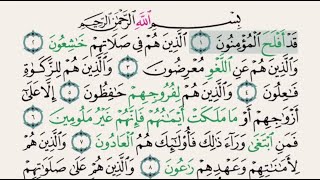 بِسْمِ اللَّهِ الرَّحْمَٰنِ الرَّحِيمِ
قَدْ أَفْلَحَ الْمُؤْمِنُونَ ١ الَّذِينَ هُمْ فِي صَلَاتِهِمْ خَٰشِعُونَ ٢
وَالَّذِينَ هُمْ عَنِ اللَّغْوِ مُعْرِضُونَ ٣ وَالَّذِينَ هُمْ لِلزَّكَوٰةِ
فَٰعِلُونَ ٤ وَالَّذِينَ هُمْ لِفُرُوجِهِمْ حَٰفِظُونَ ٥ إِلَّا عَلَىٰ
أَزْوَٰجِهِمْ أَوْ مَا مَلَكَتْ أَيْمَٰنُهُمْ فَإِنَّهُمْ غَيْرُ مَلُومِينَ ٦
فَمَنِ ابْتَغَىٰ وَرَآءَ ذَٰلِكَ فَأُولَٰٓئِكَ هُمُ الْعَادُونَ ٧ وَالَّذِينَ هُمْ
لِأَمَٰنَٰتِهِمْ وَعَهْدِهِمْ رَٰعُونَ ٨ وَالَّذِينَ هُمْ عَلَىٰ صَلَوَٰتِهِمْ